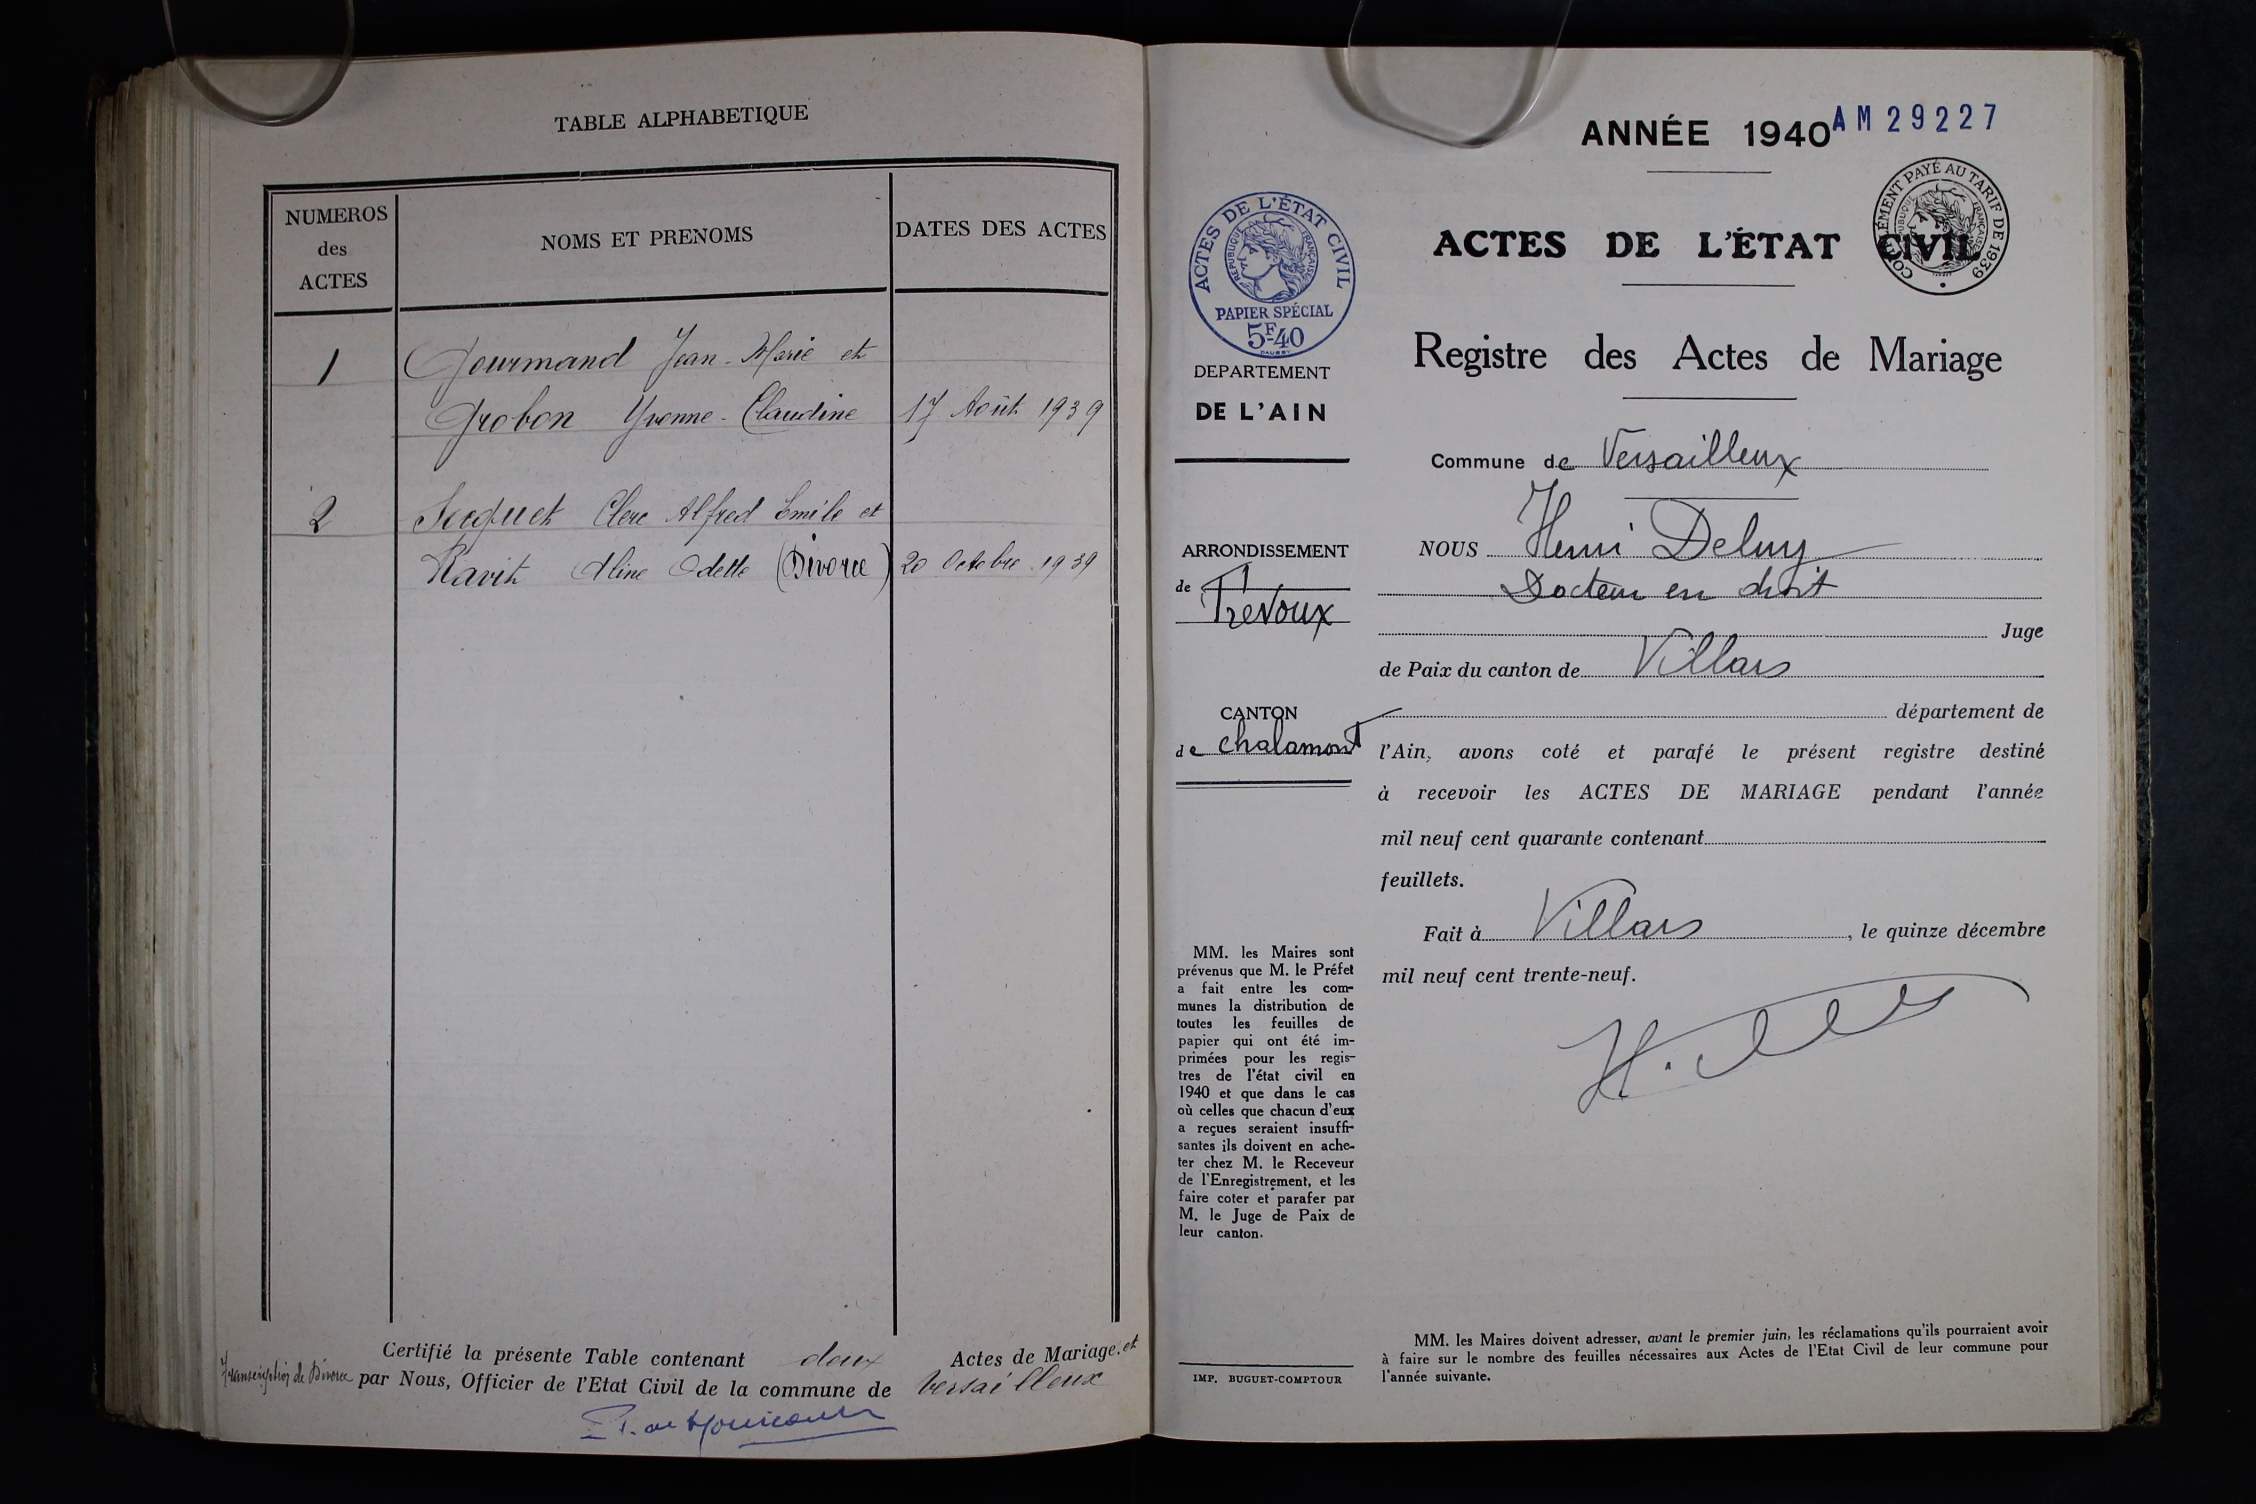 TABLE ALPHABETIQUE
NUMEROS
des
ACTES
NOMS ET PRENOMS
DATES DES ACTES
1
Gourmand Jean-Marie et
Grobon Yvonne-Claudine
17 Août 1939
2
Clerc Alfred Emile et
Ravit Aline Odette (Divorce)
20 Octobre 1939
Certifié la présente Table contenant deux Actes de Mariage. et
Transcription de Divorce par Nous, Officier de l'Etat Civil de la commune de Versailleux
ANNÉE 1940
AM 29227
ACTES DE L'ÉTAT CIVIL
COMPLÉMENT PAYÉ AU TARIF DE 1939
RÉPUBLIQUE FRANÇAISE
Registre des Actes de Mariage
ACTES DE L'ÉTAT CIVIL
RÉPUBLIQUE FRANÇAISE
PAPIER SPÉCIAL
5F40
DAUSSY
DEPARTEMENT
DE L'AIN
ARRONDISSEMENT
de Trévoux
CANTON
de Chalamont
MM. les Maires sont
prévenus que M. le Préfet
a fait entre les com-
munes la distribution de
toutes les feuilles de
papier qui ont été im-
primées pour les regis-
tres de l'état civil en
1940 et que dans le cas
où celles que chacun d'eux
a reçues seraient insuffi-
santes ils doivent en ache-
ter chez M. le Receveur
de l'Enregistrement, et les
faire coter et parafer par
M. le Juge de Paix de
leur canton.
IMP. BUGUET-COMPTOUR
Commune de Versailleux
NOUS Henri Deluy
Docteur en droit
Juge
de Paix du canton de Villars
département de
l'Ain, avons coté et parafé le présent registre destiné
à recevoir les ACTES DE MARIAGE pendant l'année
mil neuf cent quarante contenant
feuillets.
Fait à Villars, le quinze décembre
mil neuf cent trente-neuf.
MM. les Maires doivent adresser, avant le premier juin, les réclamations qu'ils pourraient avoir
à faire sur le nombre des feuilles nécessaires aux Actes de l'Etat Civil de leur commune pour
l'année suivante.